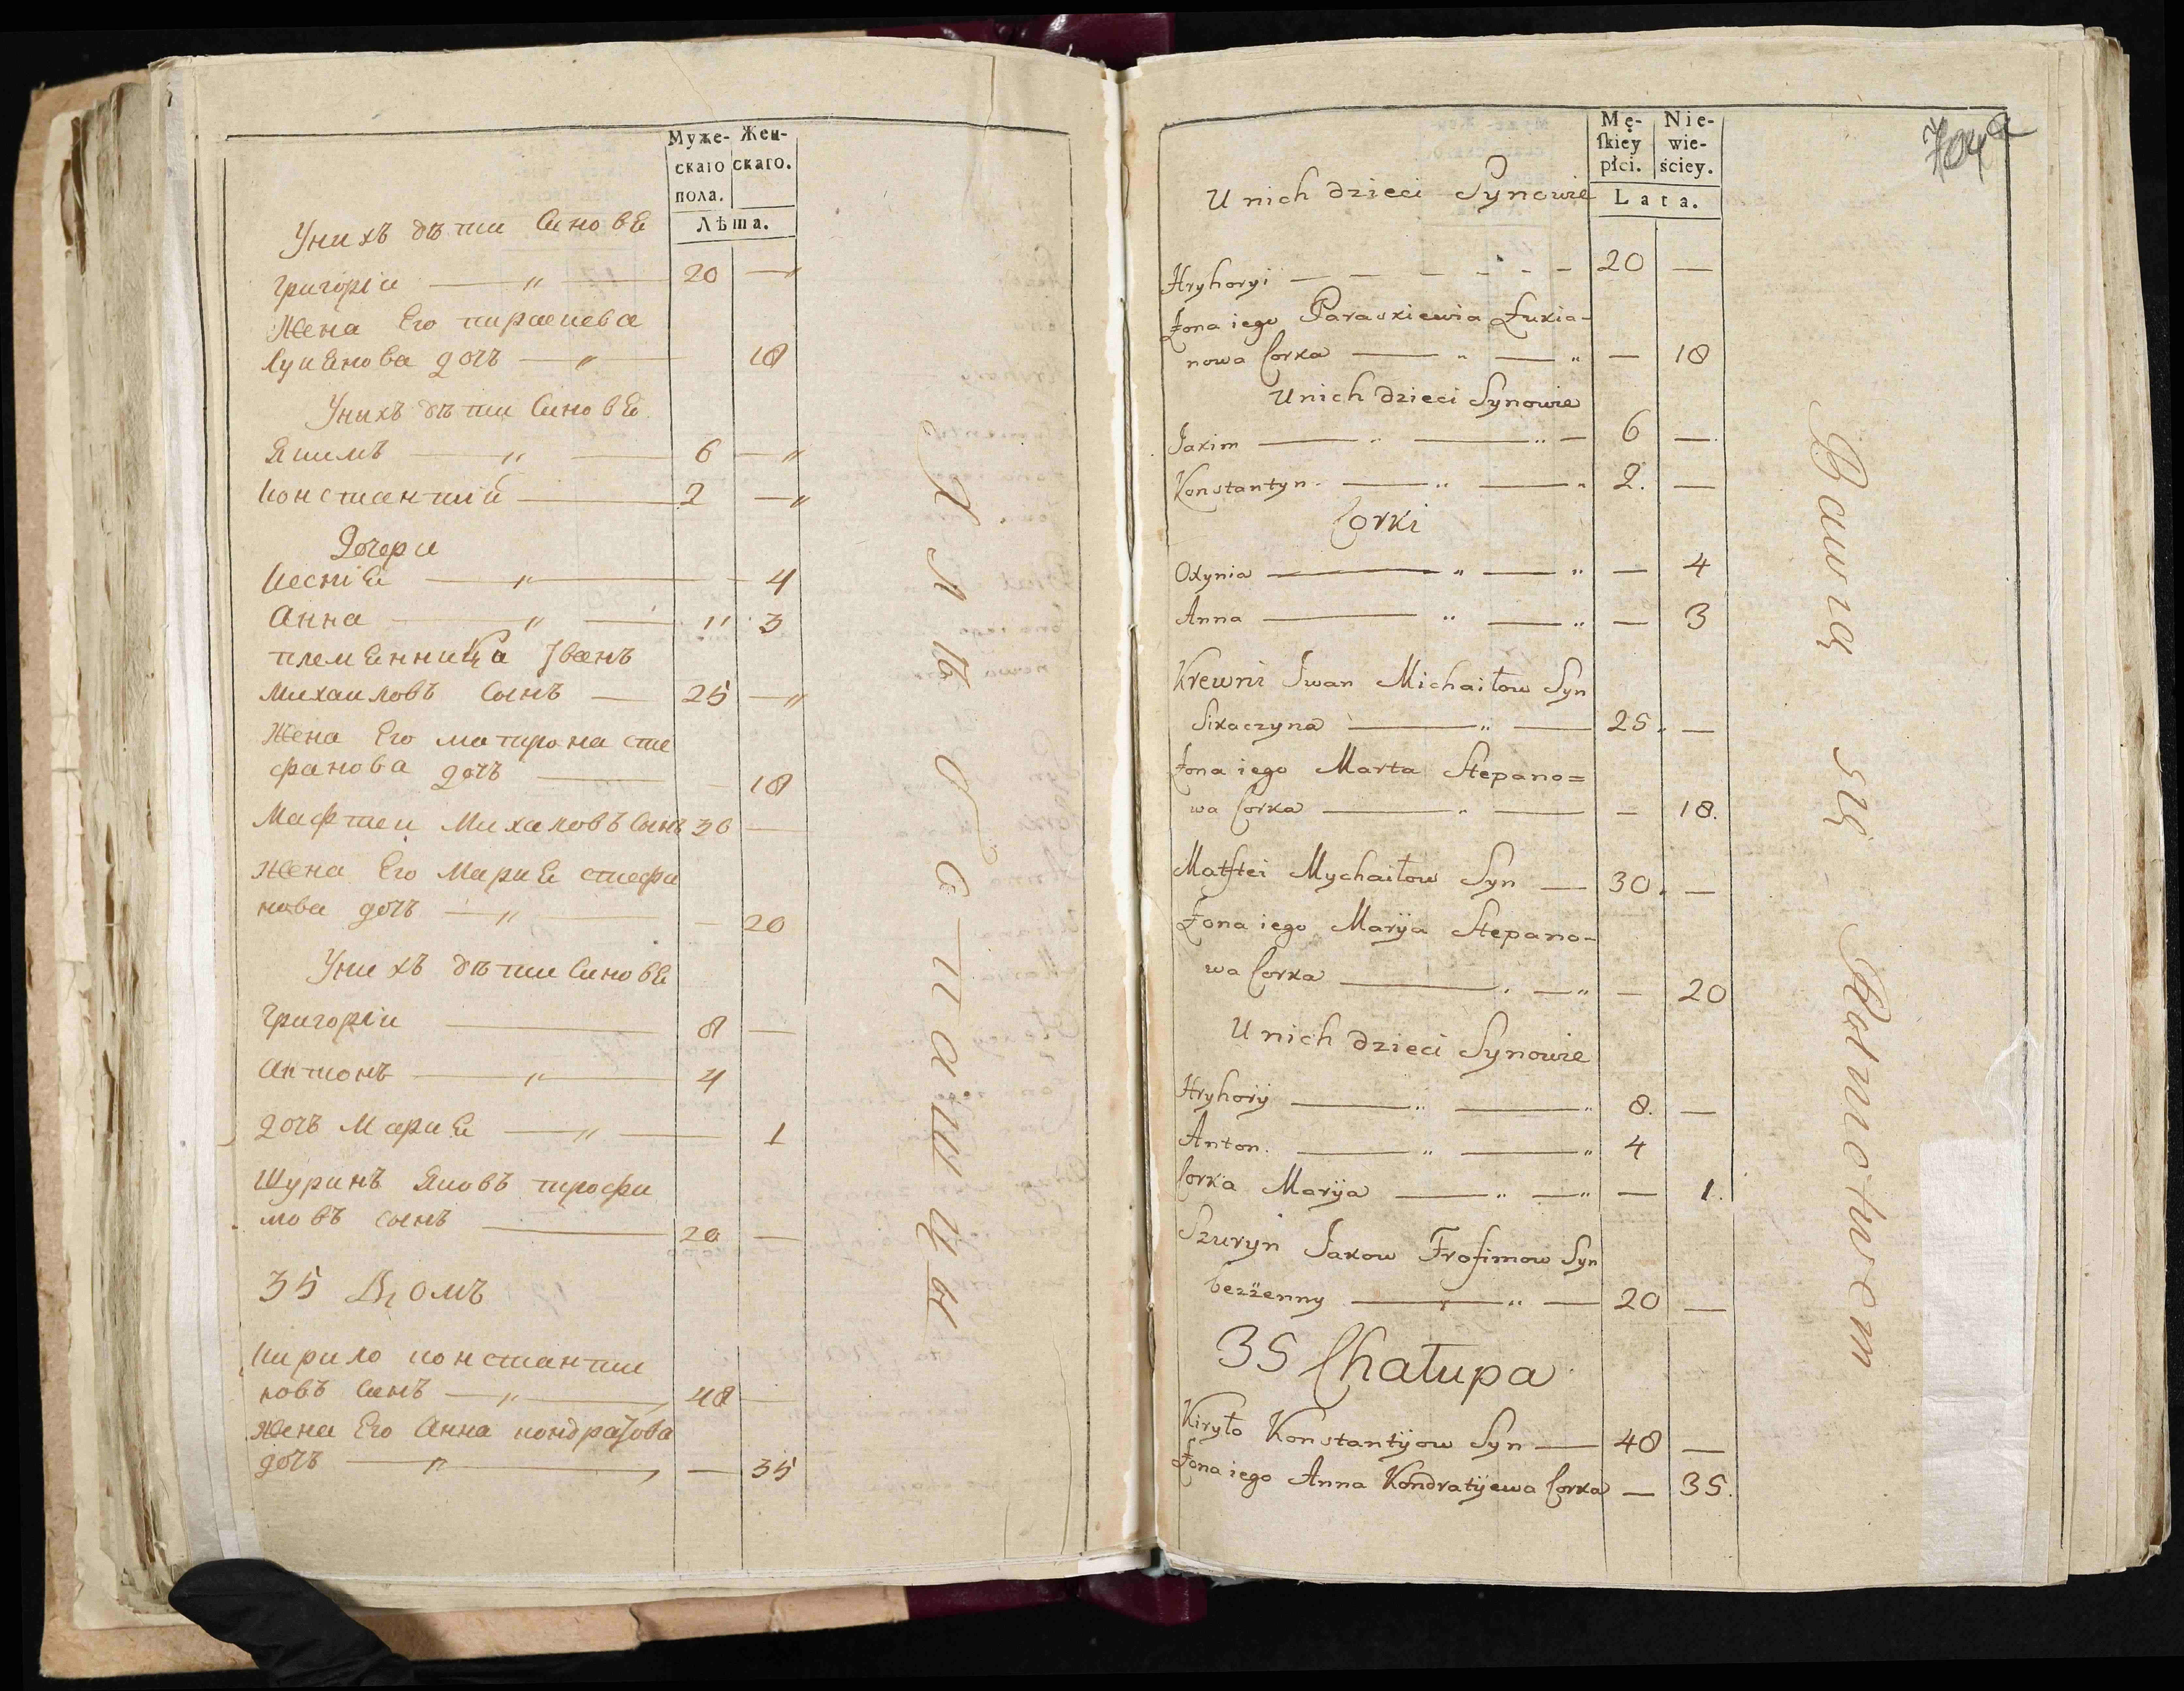 Муже-
скаго
пола.
Жен-
скаго.
Лѣта.
Унихъ дѣти Синове
Григорiи — " — 20 — "
Жена Его параскева
Лукянова дочь — " — 18
Унихъ дѣти Синове
Якимъ — " — 6 — "
Константiй — 2 — "
Дочери
Ксенiя — " — 4
Анна — " — " 3
племенника Iванъ
Михаиловъ Сынъ — 25 — "
Жена Его матрона сте
фанова дочь — 18
Мафтеи Михаловъ Сынъ 30 —
Жена Его Мария стефа
нова дочь — " — 20
Унихъ дѣти Синове
Григорiи — 8 —
Антонъ — " — 4
дочь Мария — " — 1
Шуринъ Яковъ трофи
мовъ сынъ — 20 —
35 Домъ
Кирило константи
новъ Синъ — " — 48 —
Жена Его Анна кондратова
дочь — " — 35
Хлѣбопашцы
704 a
Mę-
skiey
płci.
Nie-
wie-
ściey.
Lata.
U nich dzieci Synowie
Hryhoryi — — — — — — 20 —
Żona iego Paraskiewia Łukia-
nowa Corka — " — " — 18
U nich dzieci Synowie
Jakim — " — " — 6 —
Konstantyn — " — " 2. —
Corki
Oxynia — " — " — 4
Anna — " — " — 3
Krewni Iwan Michaiłow Syn
Sikaczyna — " — 25. —
Żona iego Marta Stepano=
wa Corka — " — — 18.
Matftei Mychaiłow Syn — 30. —
Żona iego Marÿa Stepano-
wa Corka — " — " — 20
U nich dzieci Synowie
Hryhorÿ — " — " 8. —
Anton. — " — " 4
Corka Marÿa — " — " — 1.
Szuryn Jakow Trofimow Syn
bezżenny — " — 20 —
35 Chałupa
Kiryło Konstantÿow Syn — 48 —
Żona iego Anna Kondratÿewa Corka — 35.
Bawią się Rolnictwem